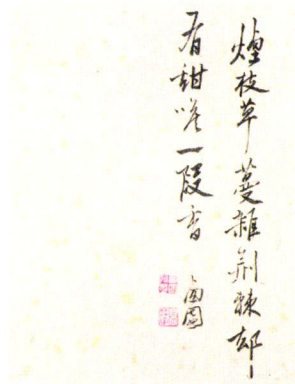 煙枝草蔓雜荆棘却
有甜唯一段香